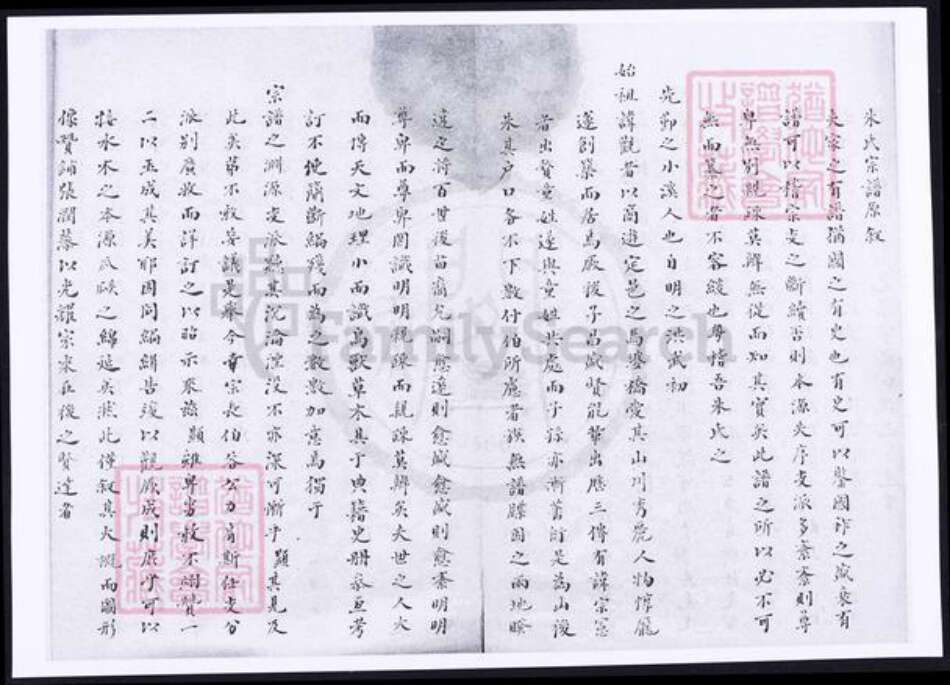 朱氏宗譜原叙
夫家之有譜猶國之有史也有史可以鑒國祚之盛衰有
譜可以稽宗支之斷續否則本源失序支派多紊紊則尊
卑無別親疎莫辨無從而知其實矣此譜之所以必不可
無而纂之者不容緩也粵稽吾朱氏之
先鄞之小溪人也自明之洪武初
始祖諱觀者以商遊定邑之馬婆橋愛其山川秀麗人物惇龐
遂創築而居焉厥後子昌盛賢能輩出歷三傳有諱宗憲
者出贅童姓遂與童姓共處而子孫亦漸蕃衍是為山後
朱其戶口各不下數付伯所慮者族無譜牒因之兩地睽
違之將百世後苗裔尤嗣愈遠則愈盛愈盛則愈紊明明
尊卑而尊卑罔識明明親疎而親疎莫辨矣夫世之人大
而傳天文地理小而識鳥獸草木其于典籍史冊參互考
訂不使簡斷編殘而為之數數加意焉獨于
宗譜之淵源支派聽其沉淪湮沒不亦深可慚乎 顯其見及
此矣第不敢妄議是舉今奇宗長伯答公力肩斯任支分
派別廣收而詳訂之以昭示來茲 顯雖卑劣敢不翊贊一
二以玉成其美耶因同編緝告竣以觀厥成則庶乎可以
接水木之本源瓜瓞之綿延矣茲此僅叙其大概而圖形
像贊鋪張潤藻以光耀宗來在後之賢達者
FamilySearch